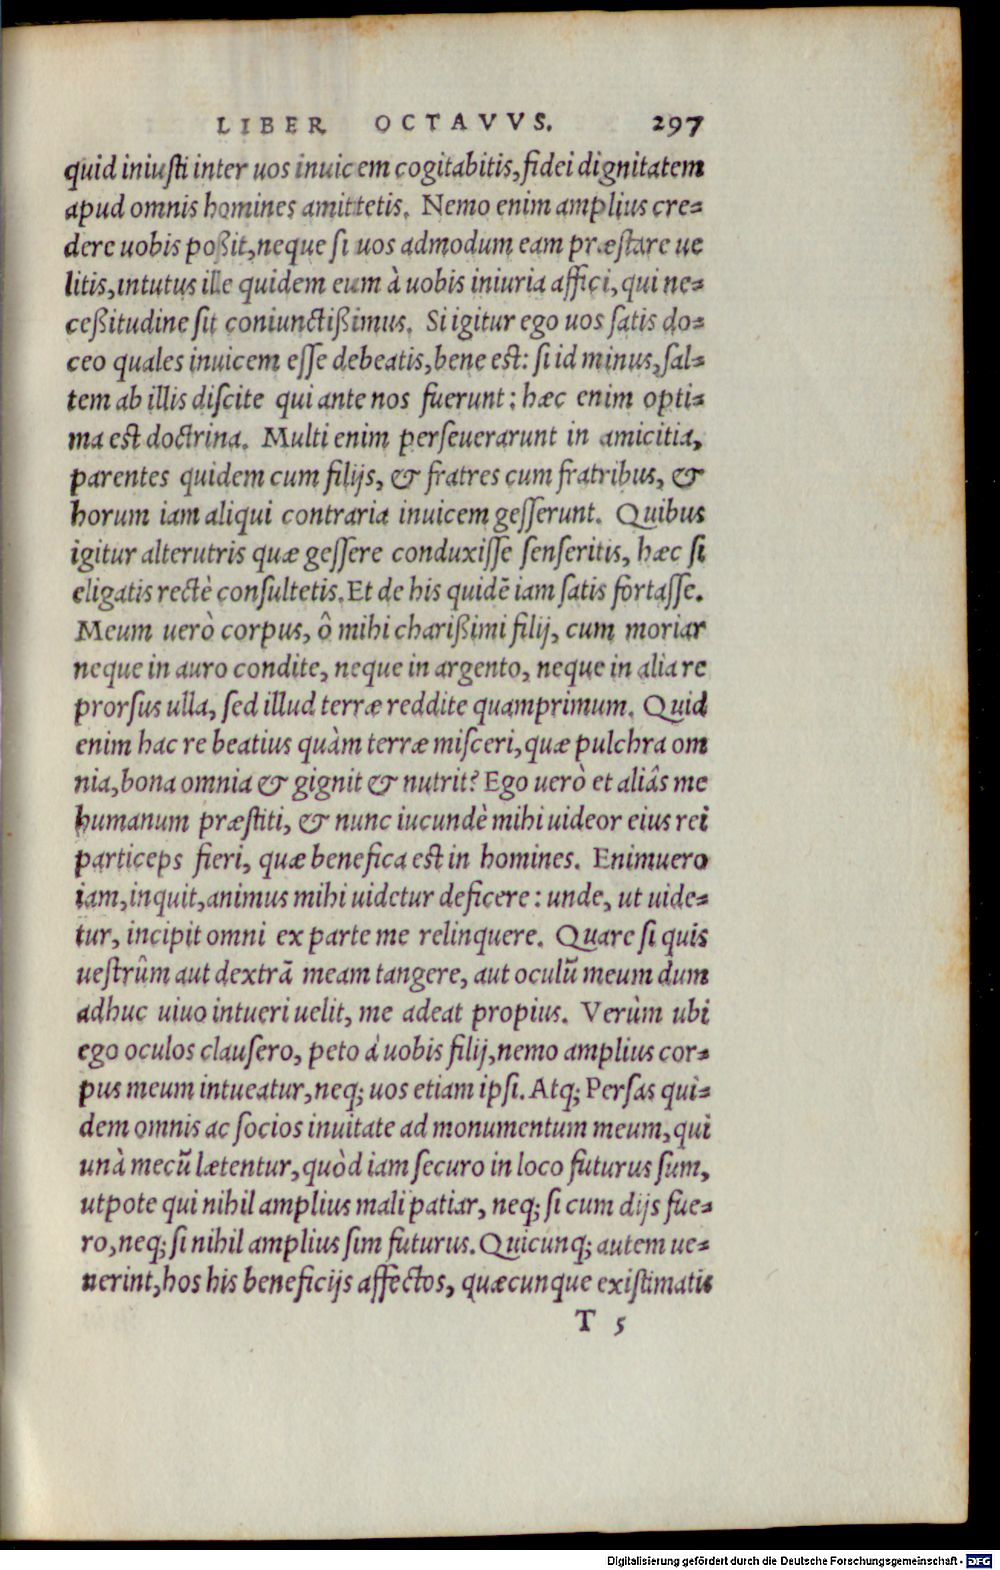 LIBER OCTAVVS. 297
quid iniusti inter uos inuicem cogitabitis, fidei dignitatem
apud omnis homines amittetis. Nemo enim amplius cre-
dere uobis poßit, neque si uos admodum eam præstare ue
litis, intutus ille quidem eum à uobis iniuria affici, qui ne-
ceßitudine sit coniunctißimus. Si igitur ego uos satis do-
ceo quales inuicem esse debeatis, bene est: si id minus, sal-
tem ab illis discite qui ante nos fuerunt: hæc enim opti-
ma est doctrina. Multi enim perseuerarunt in amicitia,
parentes quidem cum filijs, & fratres cum fratribus, &
horum iam aliqui contraria inuicem gesserunt. Quibus
igitur alterutris quæ gessere conduxisse senseritis, hæc si
eligatis rectè consultetis. Et de his quidē iam satis fortasse.
Meum uerò corpus, ô mihi charißimi filij, cum moriar
neque in auro condite, neque in argento, neque in alia re
prorsus ulla, sed illud terræ reddite quamprimum. Quid
enim hac re beatius quàm terræ misceri, quæ pulchra om
nia, bona omnia & gignit & nutrit? Ego uerò et aliâs me
humanum præstiti, & nunc iucundè mihi uideor eius rei
particeps fieri, quæ benefica est in homines. Enimuero
iam, inquit, animus mihi uidetur deficere: unde, ut uide-
tur, incipit omni ex parte me relinquere. Quare si quis
uestrûm aut dextrā meam tangere, aut oculū meum dum
adhuc uiuo intueri uelit, me adeat propius. Verùm ubi
ego oculos clausero, peto à uobis filij, nemo amplius cor-
pus meum intueatur, neq; uos etiam ipsi. Atq; Persas qui-
dem omnis ac socios inuitate ad monumentum meum, qui
unà mecū lætentur, quòd iam securo in loco futurus sum,
utpote qui nihil amplius mali patiar, neq; si cum dijs fue-
ro, neq; si nihil amplius sim futurus. Quicunq; autem ue-
nerint, hos his beneficijs affectos, quæcunque existimatis
T 5
Digitalisierung gefördert durch die Deutsche Forschungsgemeinschaft - DFG